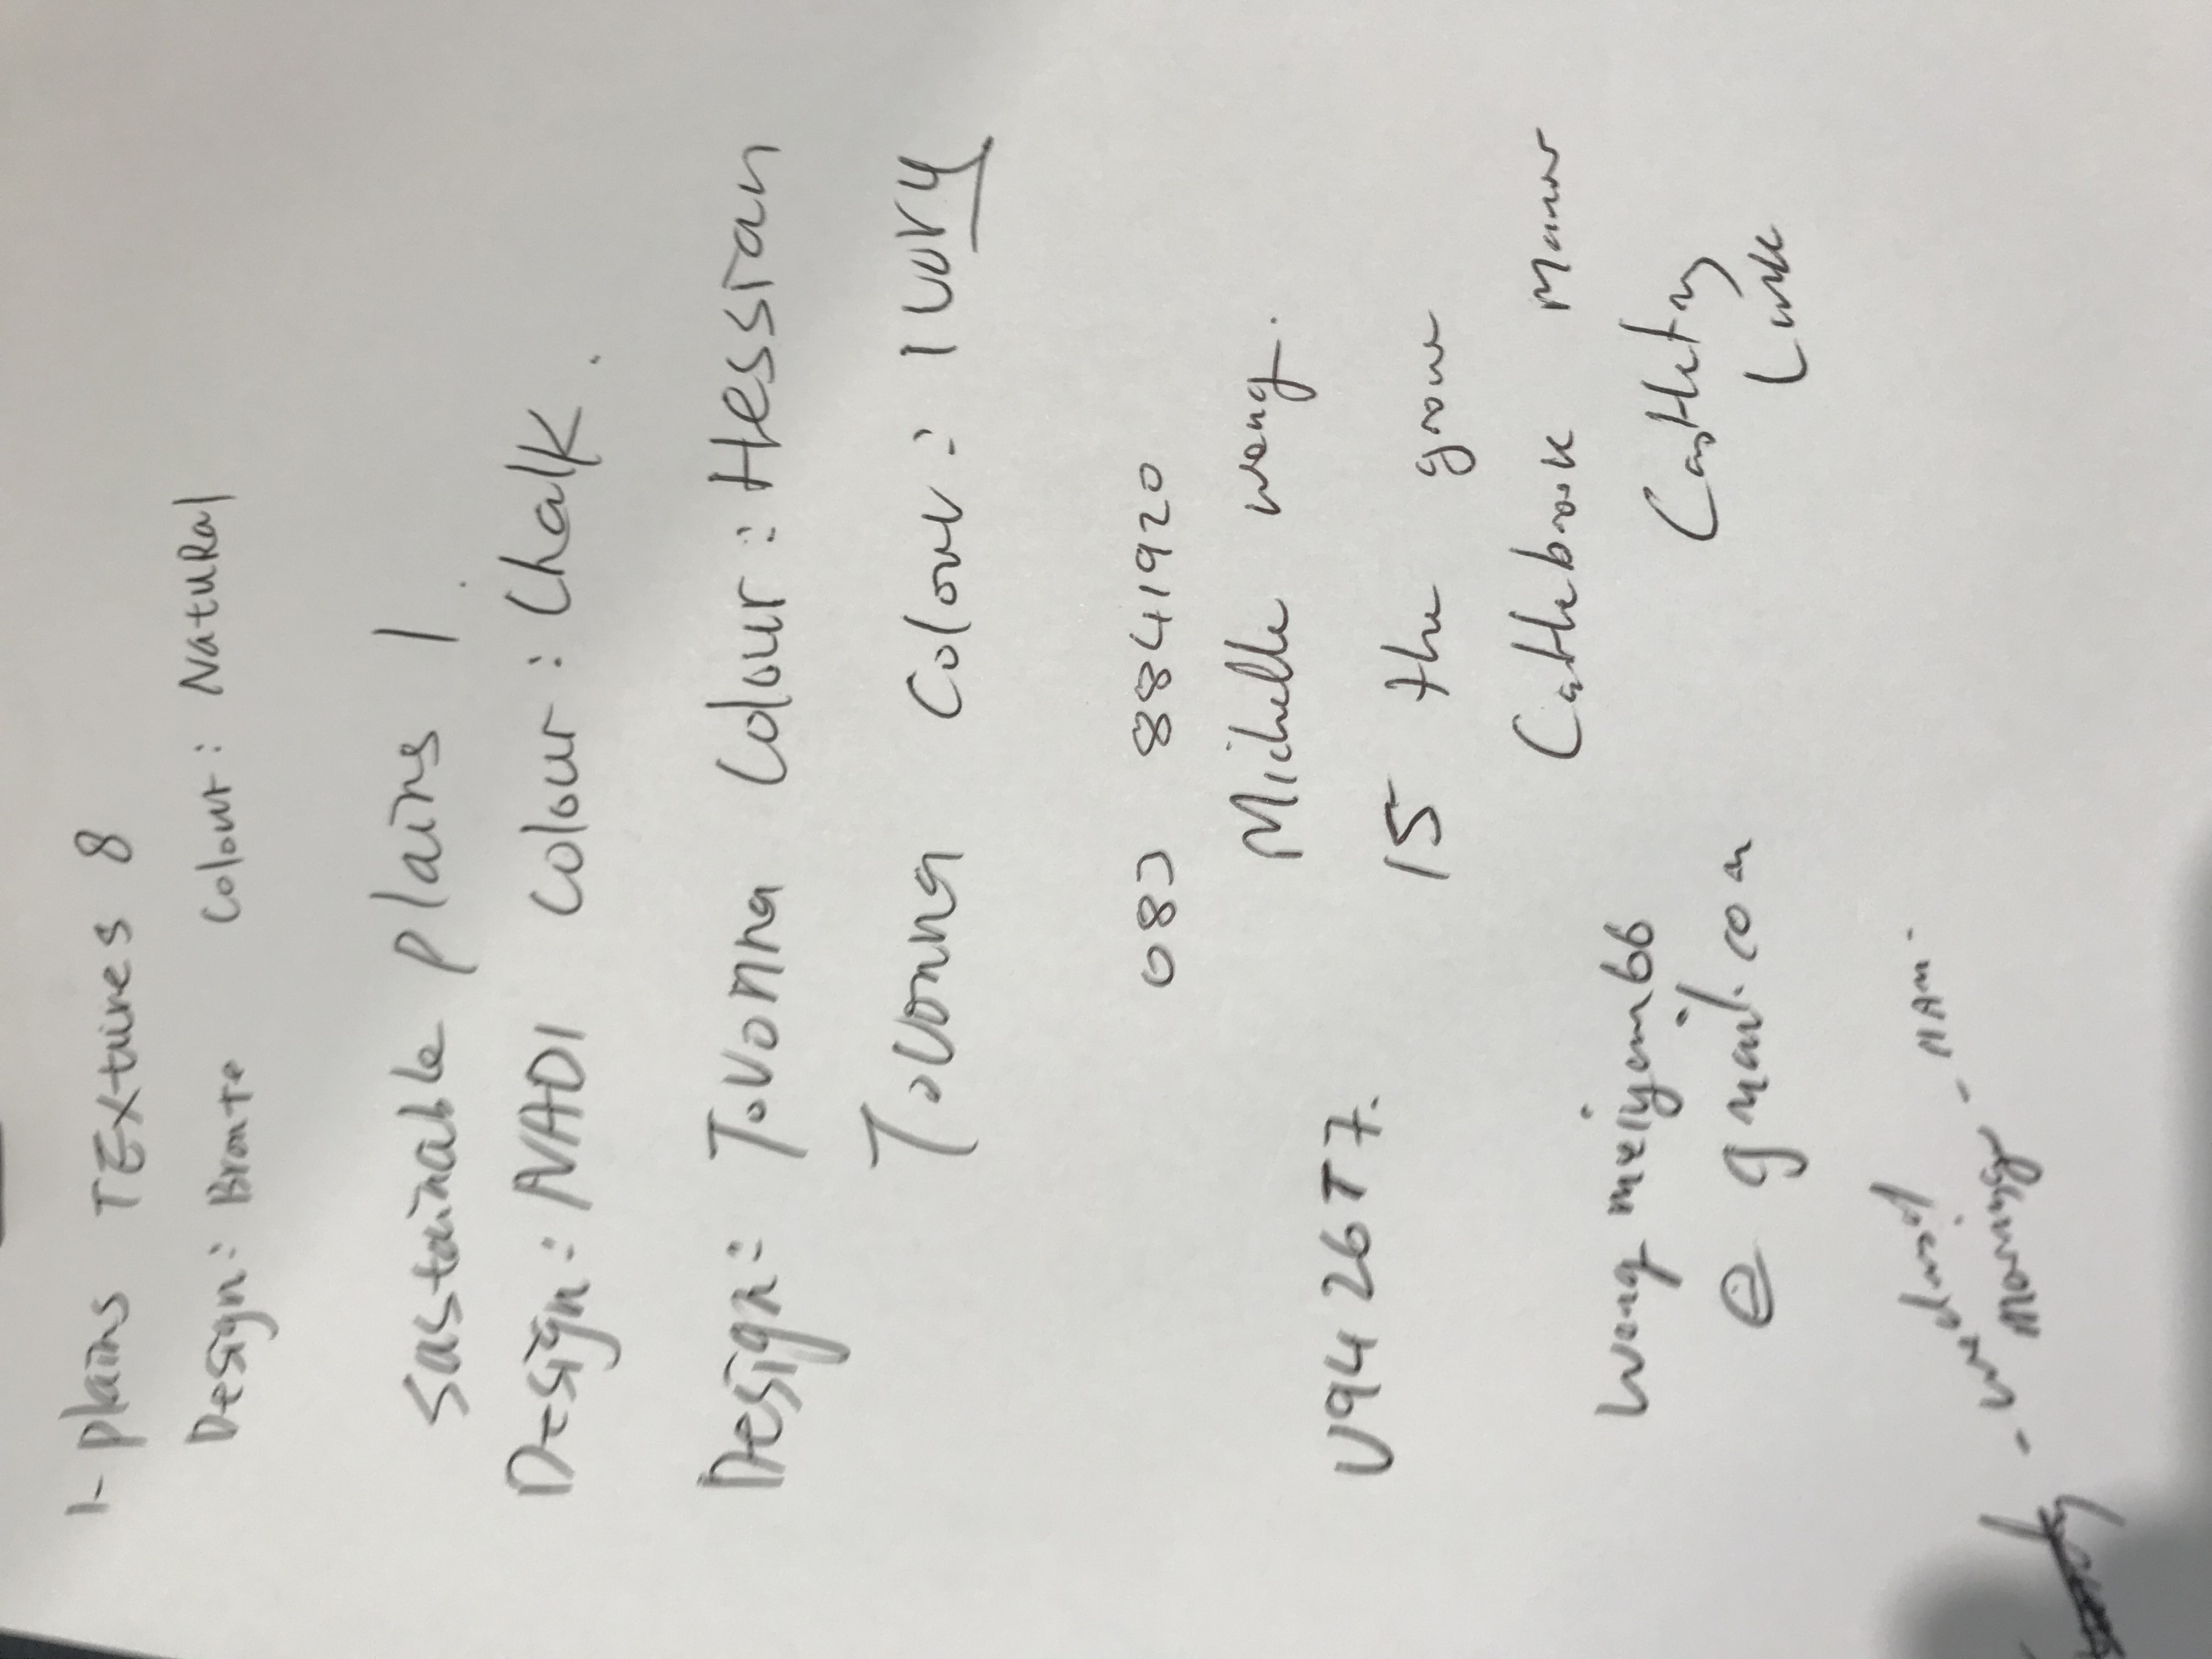 1- Plains TEXtures 8
Design: Bronte Colour: Natural
Sastainable plains 1
Design: NADI Colour: Chalk.
Design: Tovonna Colour: Hessian
Tovonna Colour: Ivory
083 8841920
Michelle Wong.
V94 26T7. 15 the grove
Castlebrook Manor
Wong meiyom66 Castletroy
@ gmail.com Limk
- Weekend
Morning - MAM.